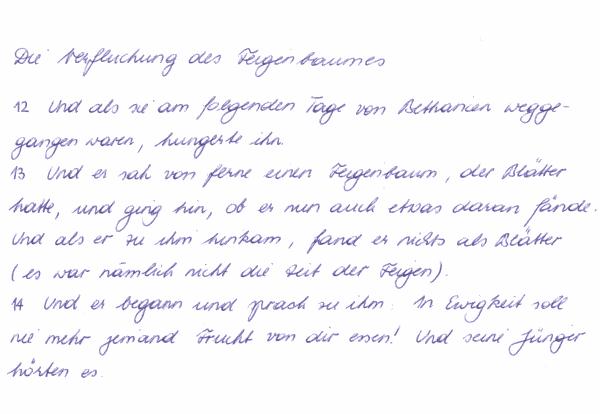 Die Verfluchung des Feigenbaumes
12 Und als sie am folgenden Tage von Bethanien wegge-
gangen waren, hungerte ihn.
13 Und er sah von ferne einen Feigenbaum, der Blätter
hatte, und ging hin, ob er nun auch etwas daran fände.
Und als er zu ihm hinkam, fand er nichts als Blätter
(es war nämlich nicht die Zeit der Feigen).
14 Und er begann und sprach zu ihm: In Ewigkeit soll
nie mehr jemand Frucht von dir essen! Und seine Jünger
hörten es.